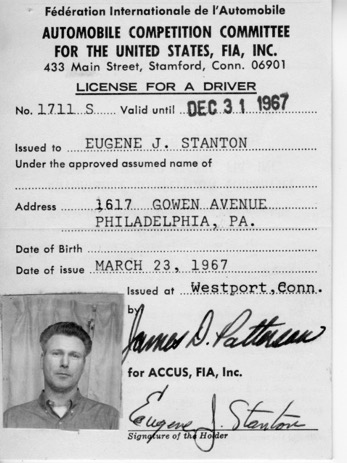 Fédération Internationale de l'Automobile
AUTOMOBILE COMPETITION COMMITTEE
FOR THE UNITED STATES, FIA, INC.
433 Main Street, Stamford, Conn. 06901
LICENSE FOR A DRIVER
No. 1711 S Valid until DEC 31 1967
Issued to EUGENE J. STANTON
Under the approved assumed name of
Address 1617 GOWEN AVENUE
PHILADELPHIA, PA.
Date of Birth
Date of issue MARCH 23, 1967
Issued at Westport, Conn.
by
James D. Patterson
for ACCUS, FIA, Inc.
Eugene J. Stanton
Signature of the Holder